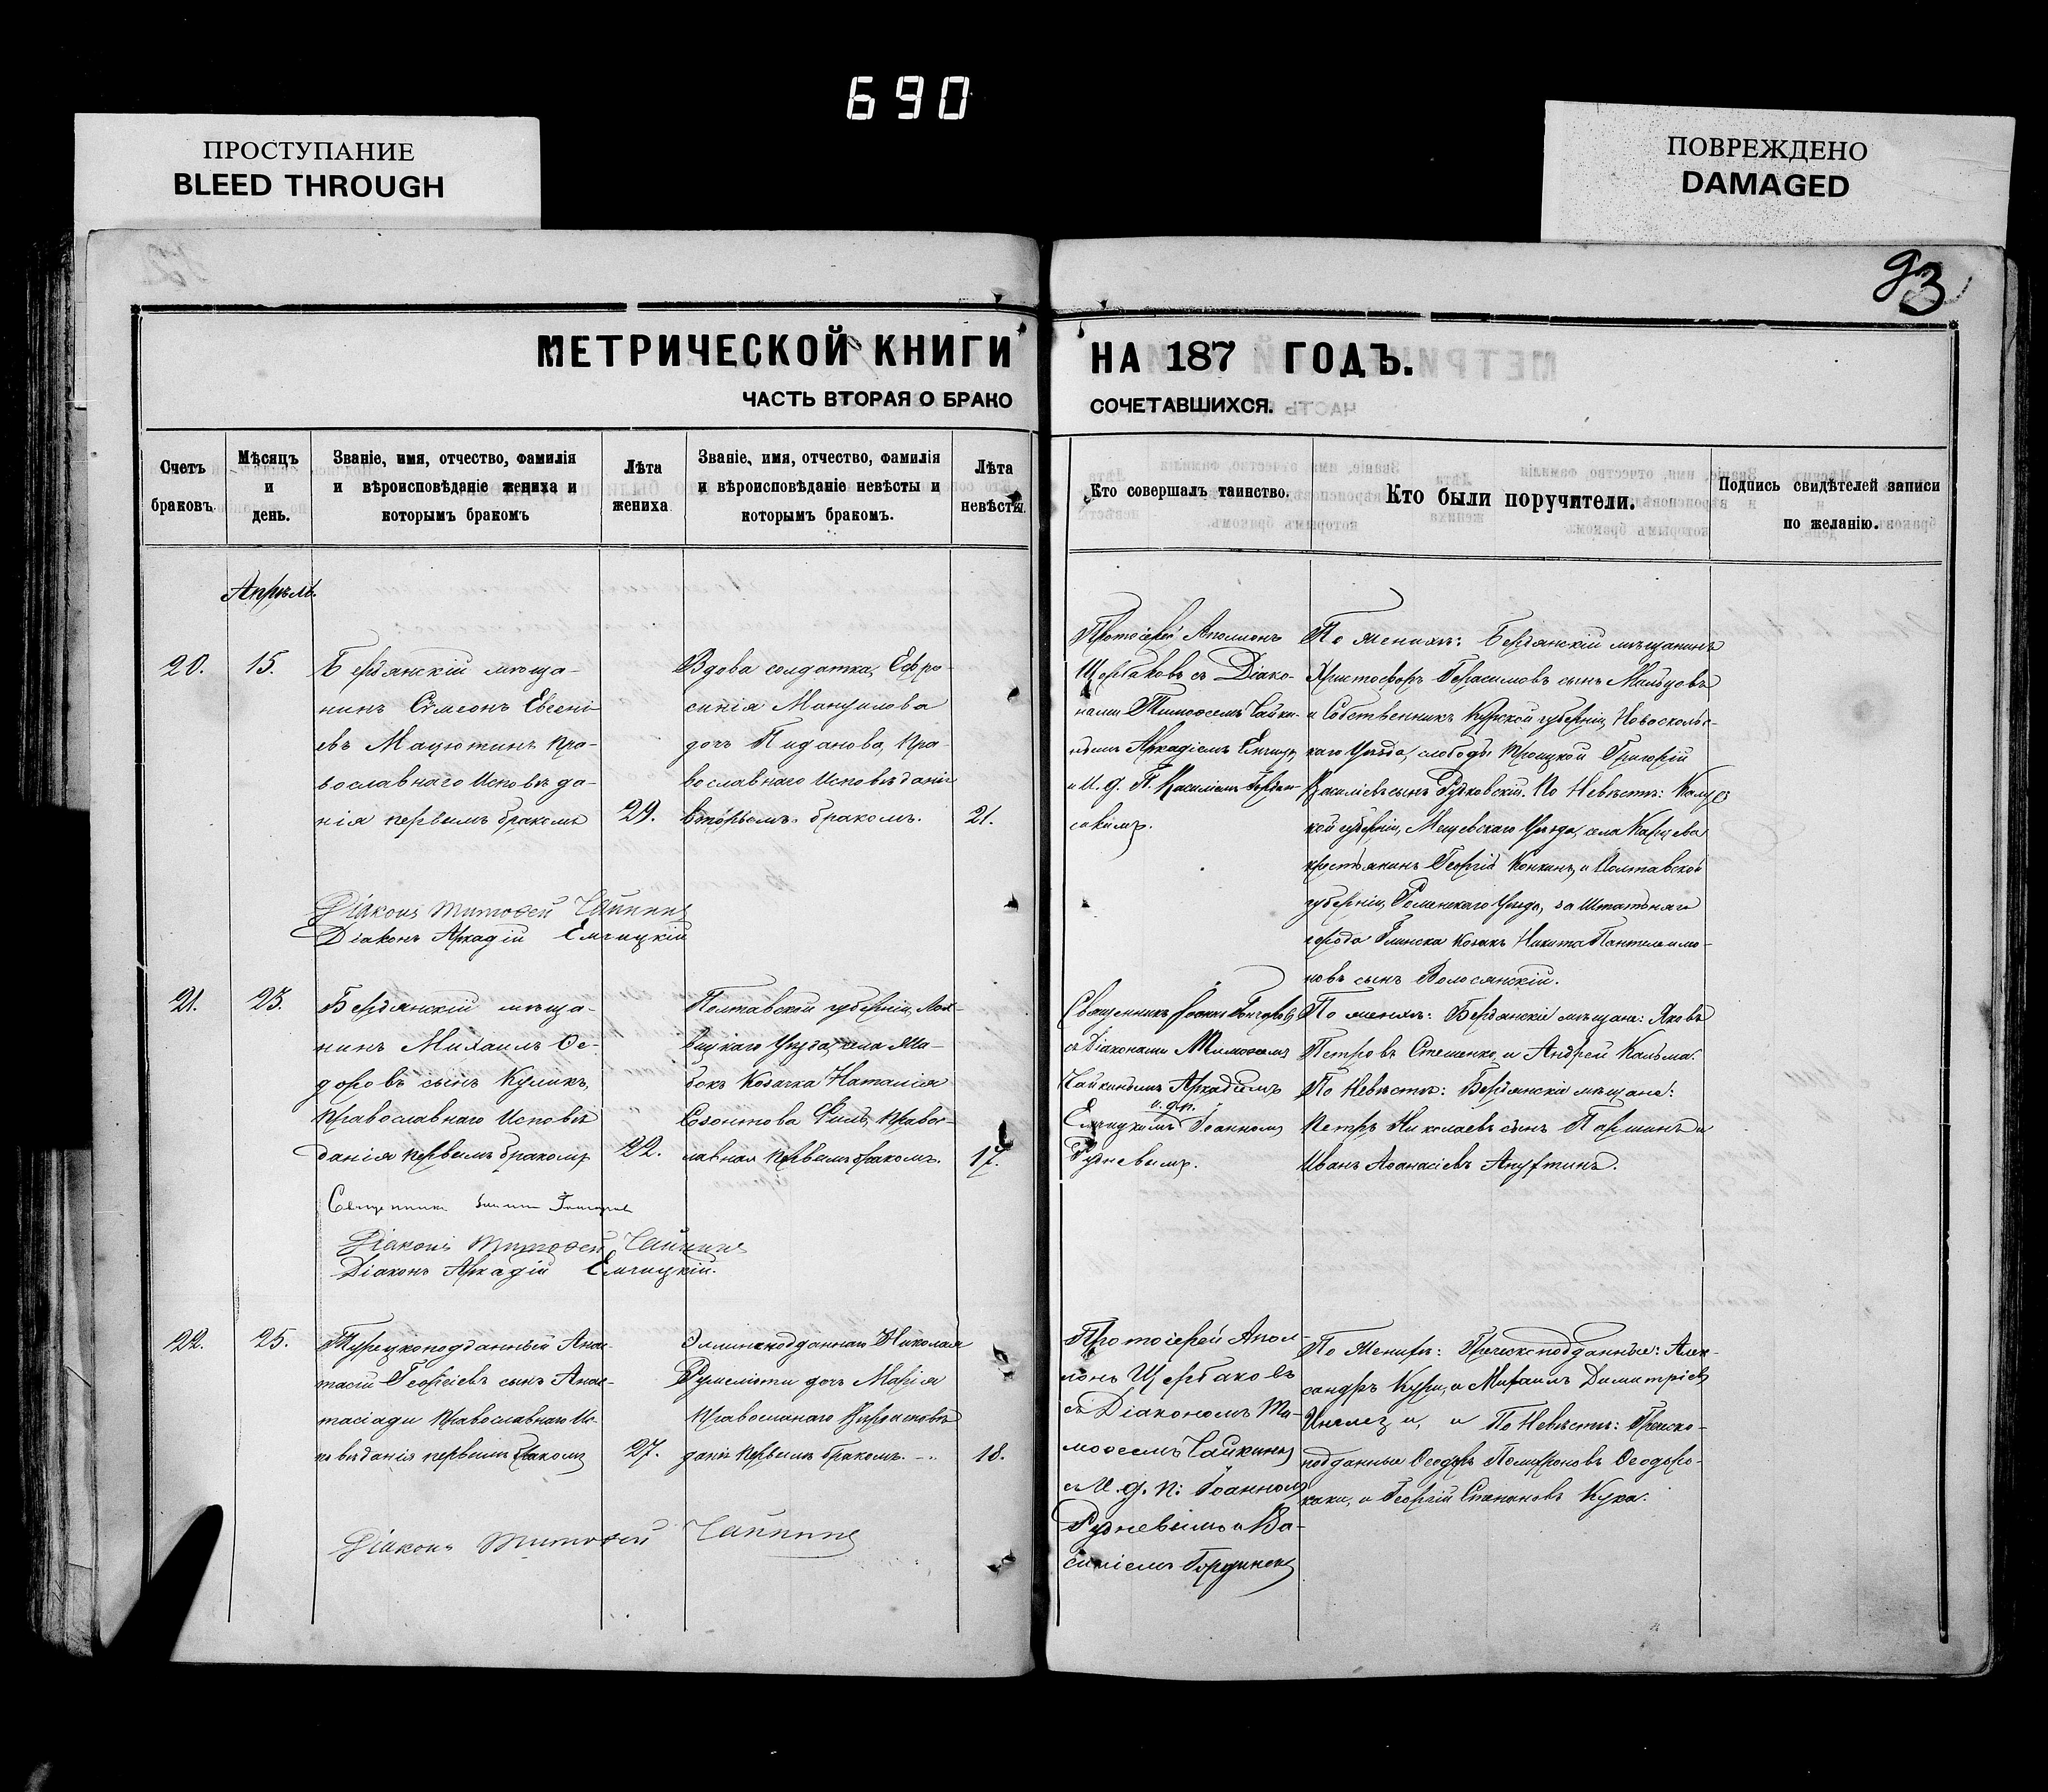 690
ПРОСТУПАНИЕ
BLEED THROUGH
ПОВРЕЖДЕНО
DAMAGED
93
МЕТРИЧЕСКОЙ КНИГИ
НА 187 ГОДЪ.
ЧАСТЬ ВТОРАЯ О БРАКО
СОЧЕТАВШИХСЯ.
Счетъ
браковъ.
Мѣсяцъ
и
день.
Званіе, имя, отчество, фамилія
и вѣроисповѣданіе жениха и
которымъ бракомъ
Лѣта
жениха
Званіе, имя, отчество, фамилія
и вѣроисповѣданіе невѣсты и
которымъ бракомъ.
Лѣта
невѣсты.
Кто совершалъ таинство.
Кто были поручители.
Подпись свидѣтелей записи
по желанію.
Апрѣль.
20.
15.
Бердянскій мѣща-
нинъ Сѵмеонъ Евгені-
евъ Мацютинъ пра-
вославнаго исповѣда-
нія первымъ бракомъ
29.
Вдова солдатка, Ефро-
синія Мануилова
дочь Пиданова, пра-
вославнаго исповѣданія
вторымъ бракомъ.
21.
Протоіерей Аполлонъ
Щербаковъ съ Діако-
нами Тимоѳеемъ Чайки-
нымъ Аркадіемъ
и И. д. П. Василіемъ
По женихѣ: Бердянскій мѣщанинъ
Христофоръ Герасимовъ сынъ Мальцовъ
и Собственникъ Курской губерніи, Новоскольс-
каго Уѣзда, слободы Троицкой Григорій
Василіевъ сынъ Рудковскій. По Невѣстѣ: Калуж-
кой губерніи, Мещевскаго Уѣзда, села Карцева
крестьянинъ Георгій Конкинъ, и Полтавской
губерніи, Роменскаго Уѣзда, заштатнаго
города Глинска козакъ Никита Пантелеимо-
новъ сынъ Волосянскій.
Діаконъ Тимоѳей Чайкинъ
Діаконъ Аркадій Емчицкій
21.
23.
Бердянскій мѣща-
нинъ Михаилъ Ѳе-
доровъ сынъ Куликъ,
православнаго исповѣ
данія первымъ бракомъ
22.
Полтавской губерніи, Лох-
вицкаго Уѣзда, села
Козачка Наталія
Созонтова православ-
лавная первымъ бракомъ.
17.
Священникъ Іоаннъ Гончаровъ
съ Діаконами Тимоѳеемъ
Чайкинымъ Аркадіемъ
и. д. п.
Емчицкимъ Іоанномъ
Рудневымъ.
По женихѣ: Бердянскіе мѣщане: Яковъ
Петровъ Стешенко, и Андрей Кальма.
По Невѣстѣ: Бердянскіе мѣщане:
Петръ Николаевъ сынъ Паршинъ и
Иванъ Аѳанасіевъ Апухтинъ.
Священникъ Іоаннъ Гончаровъ
Діаконъ Тимоѳей Чайкинъ
Діаконъ Аркадій Емчицкій.
22.
25.
Турецкоподданный Анас-
тасій Георгіевъ сынъ Анас-
тасіади православнаго ис-
повѣданія первымъ бракомъ
27.
Эллиноподданнаго Николая
дочь Марія
первымъ бракомъ.
18.
Протоіерей Апол-
лонъ Щербаковъ
съ Діакономъ Ти-
моѳеемъ Чайкинымъ
с И. д. п: Іоанномъ
Рудневымъ и Ва-
силіемъ
По Женихѣ: Греческоподданные: Алек-
сандръ Кури, и Михаилъ Димитріевъ
Инглези, и По Невѣстѣ: Греческо-
подданные Ѳеодоръ Ѳеодоро-
каки, и Георгій Степановъ Кука.
Діаконъ Тимоѳей Чайкинъ